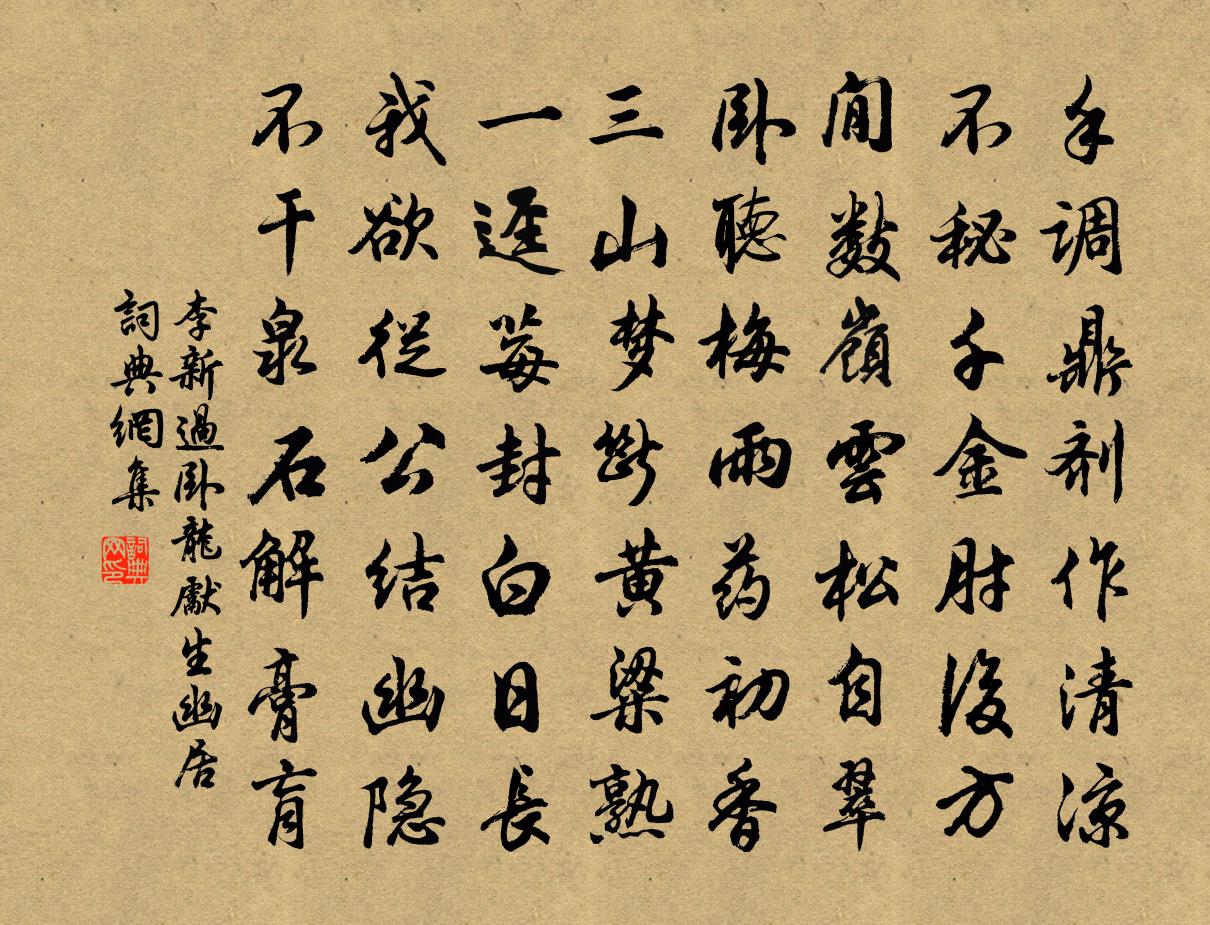 手调鼎剂作清凉
不秘千金肘後方
閒数嶺雲松自翠
卧聽梅雨药初香
三山梦断黄粱熟
一逕莓封白日長
我欲從公结幽隐
不干泉石解膏肓
李新過卧龍獻生幽居
詞典網集
詞典网印